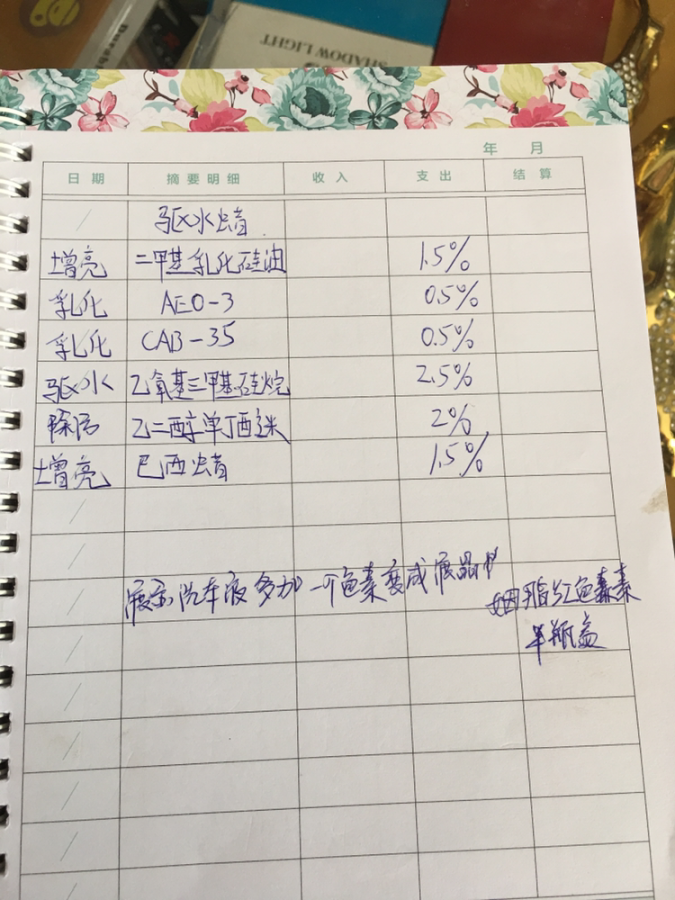 SHADOW LIGHT
年 月
日期 摘要明细 收入 支出 结算
驱水蜡
增亮 二甲基乳化硅油 1.5%
乳化 AEO-3 0.5%
乳化 CAB-35 0.5%
驱水 乙氧基三甲基硅烷 2.5%
除污 乙二醇单丁醚 2%
增亮 巴西蜡 1.5%
展示汽车液多加一个色素变成展品
胭脂红色素
半瓶盖